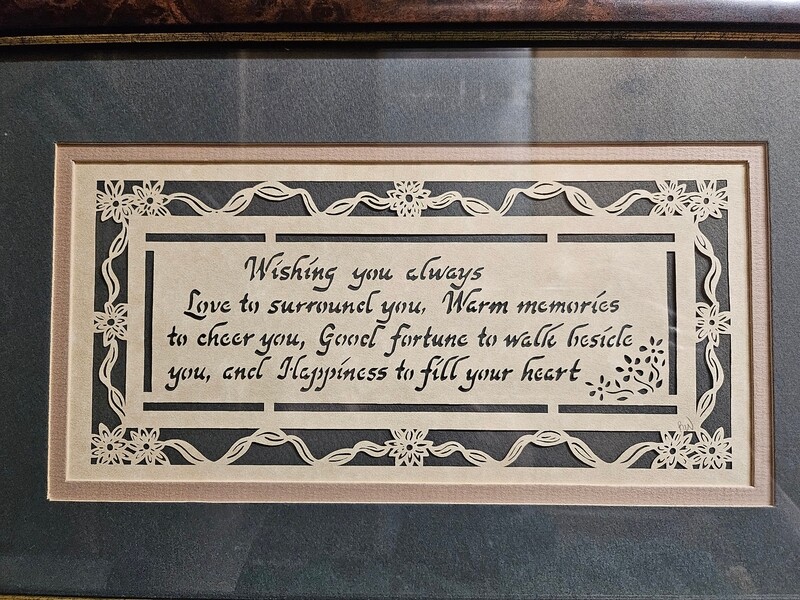 Wishing you always
Love to surround you, Warm memories
to cheer you, Good fortune to walk beside
you, and Happiness to fill your heart